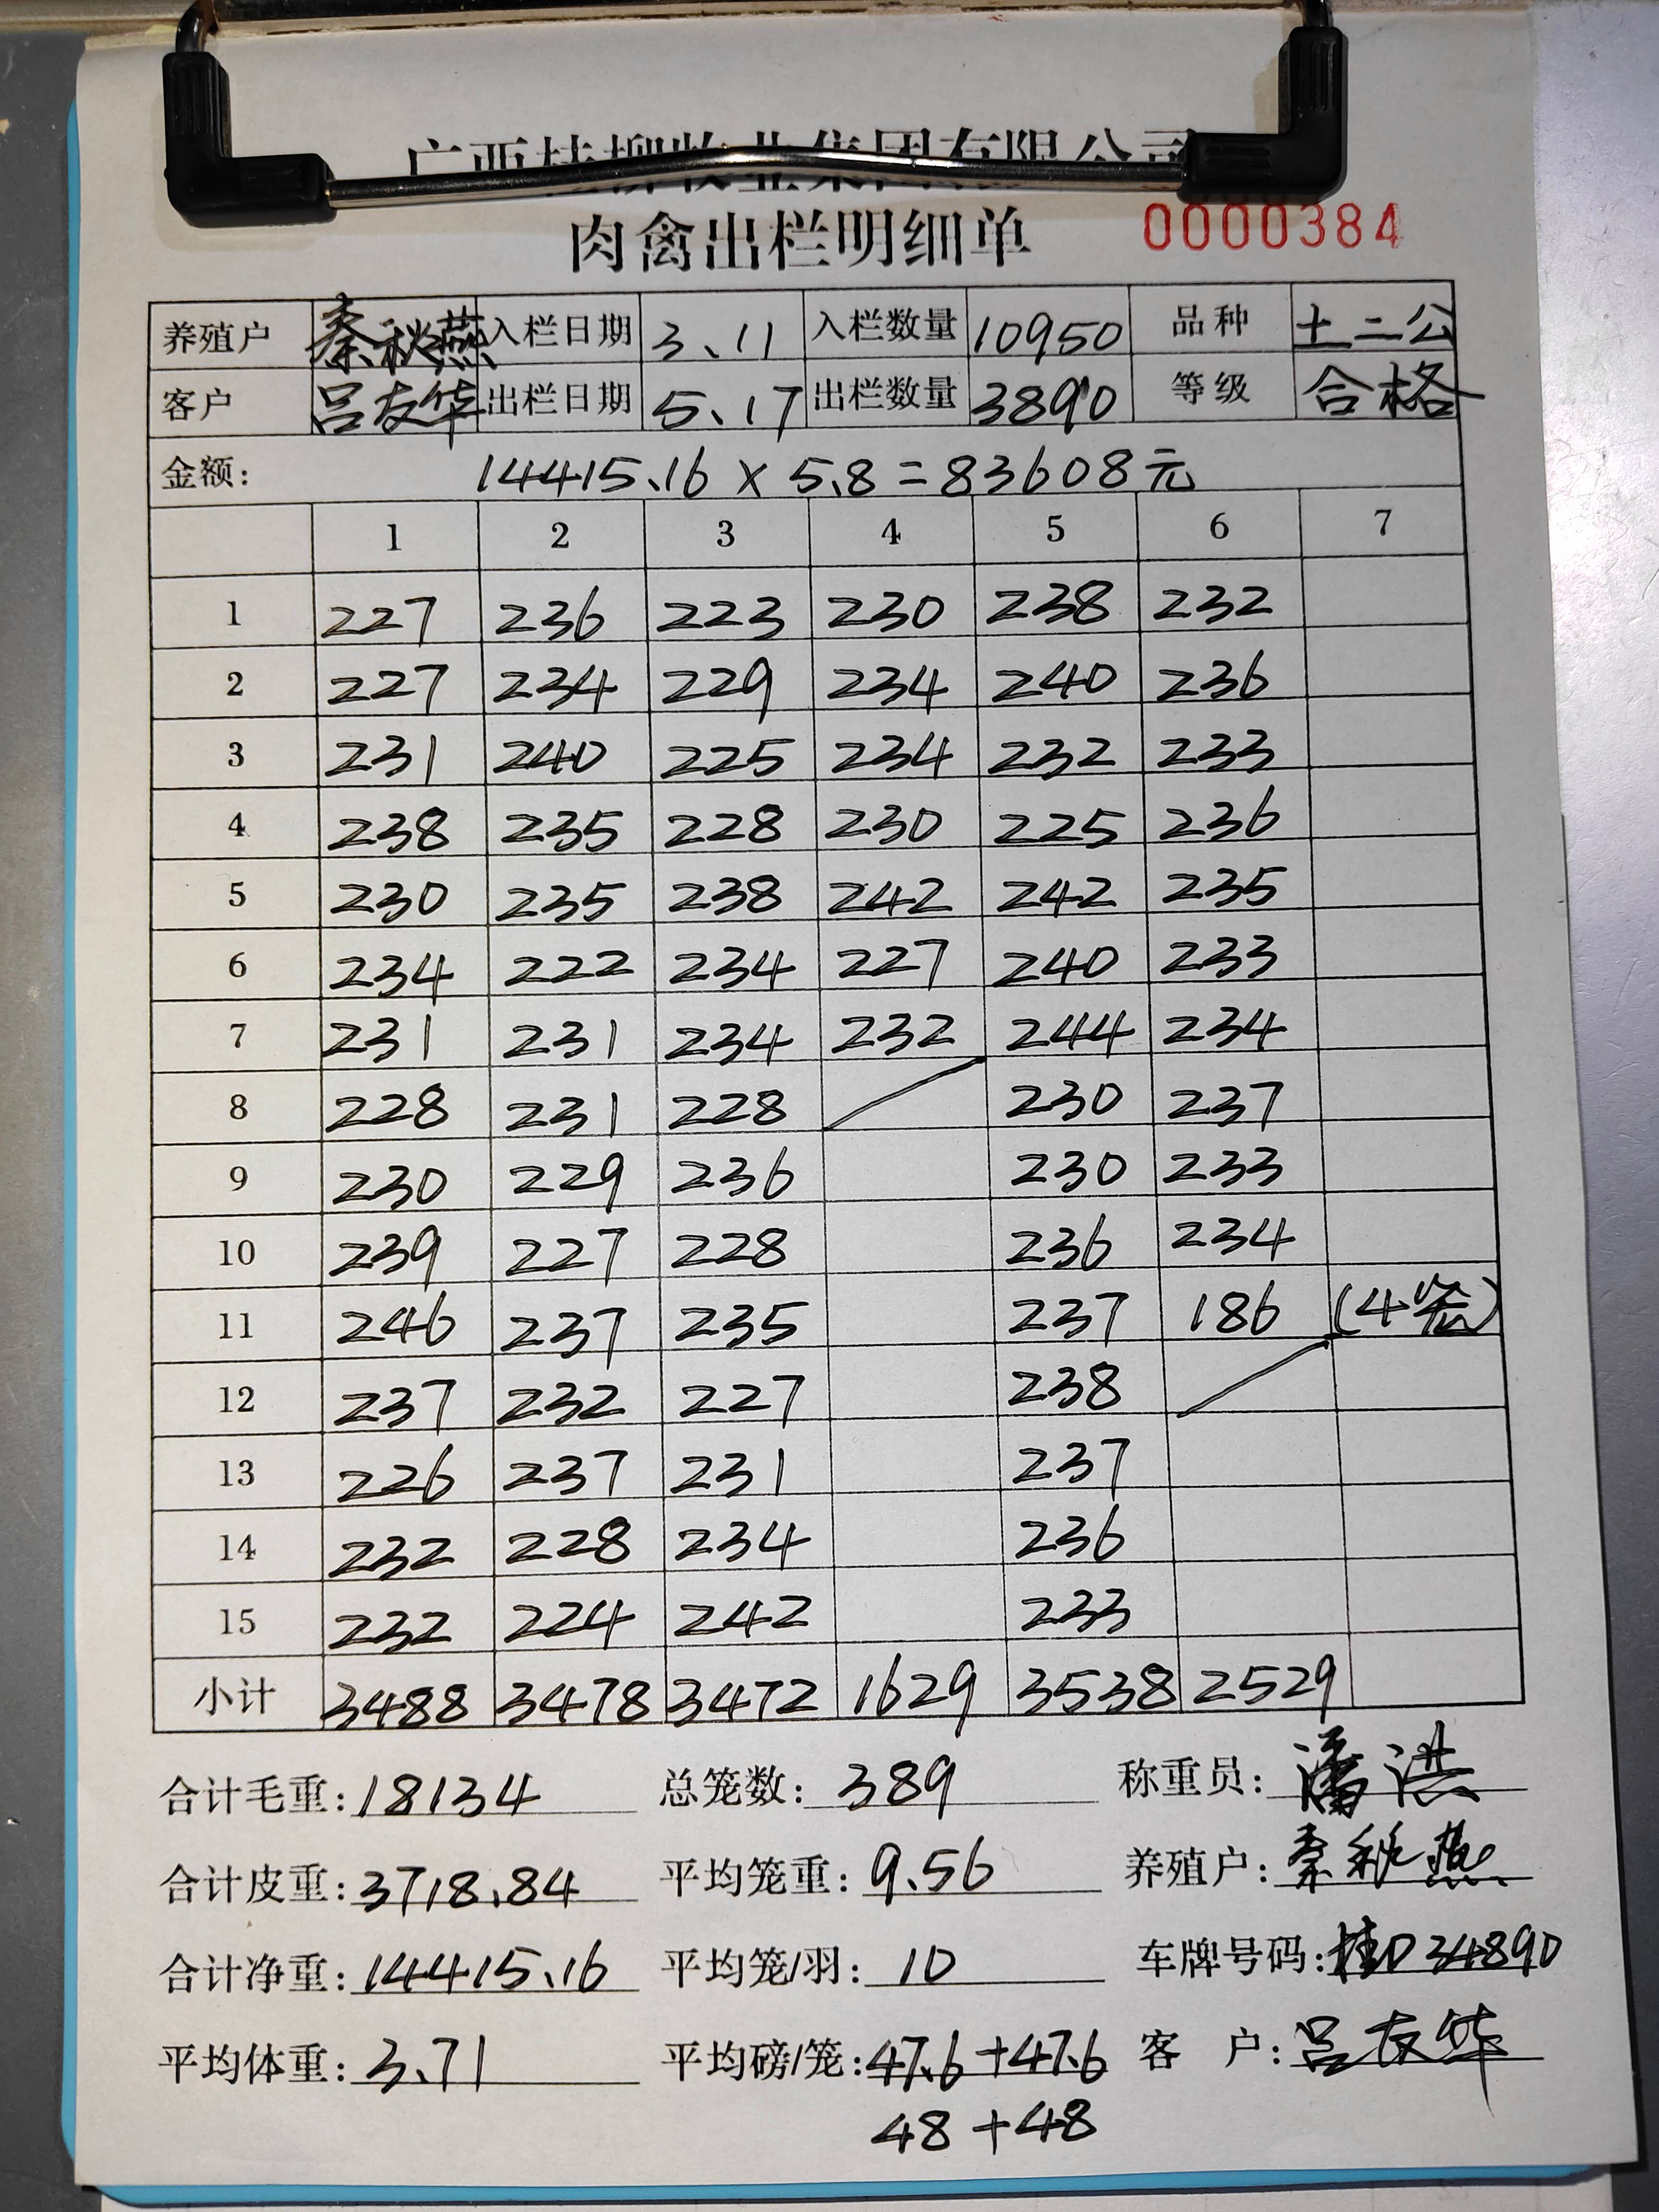 广西桂柳牧业集团有限公司
肉禽出栏明细单 0000384
养殖户 秦秋燕 入栏日期 3.11 入栏数量 10950 品种 土二公
客户 吕友华 出栏日期 5.17 出栏数量 3890 等级 合格
金额: 14415.16 × 5.8 = 83608元
1 2 3 4 5 6 7
1 227 236 223 230 238 232
2 227 234 229 234 240 236
3 231 240 225 234 232 233
4 238 235 228 230 225 236
5 230 235 238 242 242 235
6 234 222 234 227 240 233
7 231 231 234 232 244 234
8 228 231 228 230 237
9 230 229 236 230 233
10 239 227 228 236 234
11 246 237 235 237 186 (4笼)
12 237 232 227 238
13 226 237 231 237
14 232 228 234 236
15 232 224 242 233
小计 3488 3478 3472 1629 3538 2529
合计毛重: 18134 总笼数: 389 称重员: 潘洪
合计皮重: 3718.84 平均笼重: 9.56 养殖户: 秦秋燕
合计净重: 14415.16 平均笼/羽: 10 车牌号码: 桂D34890
平均体重: 3.71 平均磅/笼: 47.6+47.6 客 户: 吕友华
48+48